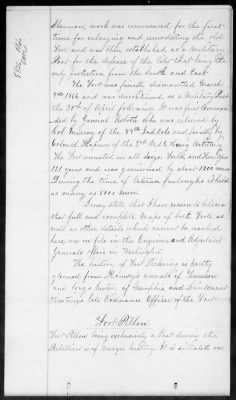 Sherman, work was commenced for the first
time for enlarging and remodelling the old
Fort and was then established as a Military
Post for the defense of the City that being the
only protection from the South and East.
The Fort was finally dismantled March
9th 1866 and was discontinued as a Military Post
the 30th of April following. It was first Comman-
ded by General who was relieved by
Col Murray of the 89th Ind Vols and finally by
Colonel of the 3rd U.S. Heavy Artillery
The Fort mounted in all Siege Field, and Howitzers
121 guns and was garrisoned by about 1200 men
During the time of it held
as many as 8000 men.
I may state that I have reason to believe
that full and complete maps of both Forts as
well as other details which cannot be reached
here are on file in the Engineer and Adjutant
Generals office in Washington.
The history of Fort Pickering is partly
gleaned from Ramseys annals of Tennessee
and history of Memphis and Lieutenant
Hastings late Ordnance Officer of the Fort
Fort Pillow
Fort Pillow being exclusively a Post during the
Rebellion is of meagre history. It is situated on